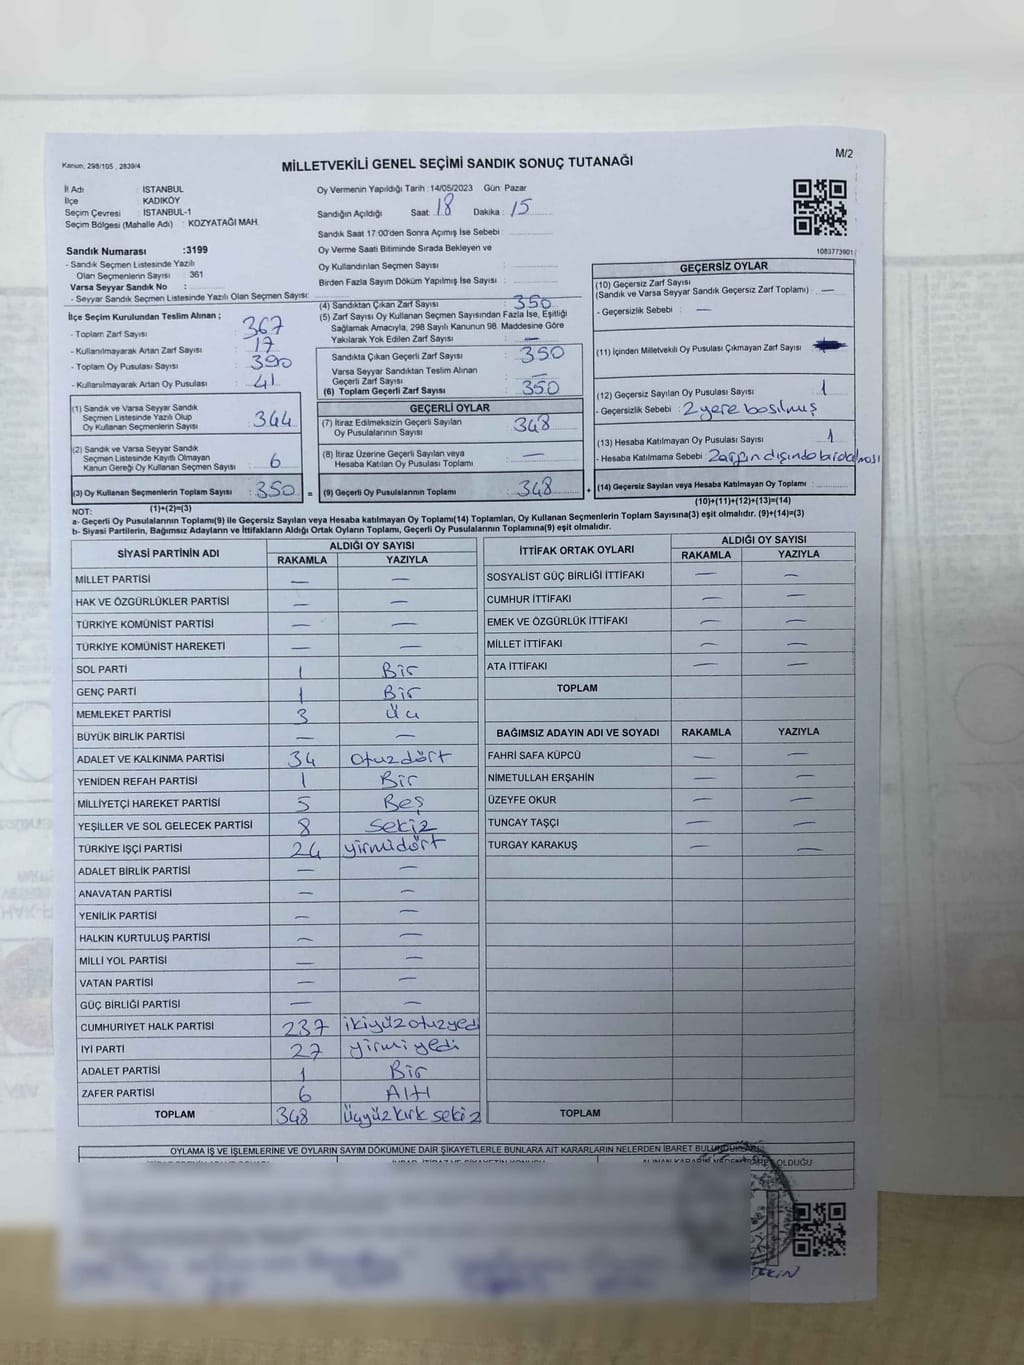 Kanun, 298/105 , 2839/4
MİLLETVEKİLİ GENEL SEÇİMİ SANDIK SONUÇ TUTANAĞI
M/2
İl Adı : İSTANBUL
İlçe : KADIKÖY
Seçim Çevresi : İSTANBUL-1
Seçim Bölgesi (Mahalle Adı) : KOZYATAĞI MAH.
Sandık Numarası :3199
- Sandık Seçmen Listesinde Yazılı
Olan Seçmenlerin Sayısı : 361
Varsa Seyyar Sandık No :
- Seyyar Sandık Seçmen Listesinde Yazılı Olan Seçmen Sayısı:
Oy Vermenin Yapıldığı Tarih : 14/05/2023 Gün: Pazar
Sandığın Açıldığı Saat: 18 Dakika : 15
Sandık Saat 17:00'den Sonra Açımış İse Sebebi :
Oy Verme Saati Bitiminde Sırada Bekleyen ve
Oy Kullandırılan Seçmen Sayısı :
Birden Fazla Sayım Döküm Yapılmış İse Sayısı :
1083773901
İlçe Seçim Kurulundan Teslim Alınan ;
- Toplam Zarf Sayısı : 367
- Kullanılmayarak Artan Zarf Sayısı : 17
- Toplam Oy Pusulası Sayısı : 390
- Kullanılmayarak Artan Oy Pusulası : 41
(1) Sandık ve Varsa Seyyar Sandık
Seçmen Listesinde Yazılı Olup
Oy Kullanan Seçmenlerin Sayısı : 344
(2) Sandık ve Varsa Seyyar Sandık
Seçmen Listesinde Kayıtlı Olmayan
Kanun Gereği Oy Kullanan Seçmen Sayısı : 6
(3) Oy Kullanan Seçmenlerin Toplam Sayısı : 350 =
(1)+(2)=(3)
(4) Sandıktan Çıkan Zarf Sayısı : 350
(5) Zarf Sayısı Oy Kullanan Seçmen Sayısından Fazla İse, Eşitliği
Sağlamak Amacıyla, 298 Sayılı Kanunun 98. Maddesine Göre
Yakılarak Yok Edilen Zarf Sayısı : —
Sandıkta Çıkan Geçerli Zarf Sayısı : 350
Varsa Seyyar Sandıktan Teslim Alınan
Geçerli Zarf Sayısı : —
(6) Toplam Geçerli Zarf Sayısı : 350
GEÇERLİ OYLAR
(7) İtiraz Edilmeksizin Geçerli Sayılan
Oy Pusulalarının Sayısı : 348
(8) İtiraz Üzerine Geçerli Sayılan veya
Hesaba Katılan Oy Pusulası Toplamı : —
(9) Geçerli Oy Pusulalarının Toplamı : 348 +
GEÇERSİZ OYLAR
(10) Geçersiz Zarf Sayısı
(Sandık ve Varsa Seyyar Sandık Geçersiz Zarf Toplamı) : —
- Geçersizlik Sebebi : —
(11) İçinden Milletvekili Oy Pusulası Çıkmayan Zarf Sayısı :
(12) Geçersiz Sayılan Oy Pusulası Sayısı : 1
- Geçersizlik Sebebi : 2 yere basılmış
(13) Hesaba Katılmayan Oy Pusulası Sayısı : 1
- Hesaba Katılmama Sebebi : Zarfın dışında
(14) Geçersiz Sayılan veya Hesaba Katılmayan Oy Toplamı :
(10)+(11)+(12)+(13)=(14)
NOT:
a- Geçerli Oy Pusulalarının Toplamı(9) ile Geçersiz Sayılan veya Hesaba katılmayan Oy Toplamı(14) Toplamları, Oy Kullanan Seçmenlerin Toplam Sayısına(3) eşit olmalıdır. (9)+(14)=(3)
b- Siyasi Partilerin, Bağımsız Adayların ve İttifakların Aldığı Ortak Oyların Toplamı, Geçerli Oy Pusulalarının Toplamına(9) eşit olmalıdır.
SİYASİ PARTİNİN ADI ALDIĞI OY SAYISI
RAKAMLA YAZIYLA
MİLLET PARTİSİ — —
HAK VE ÖZGÜRLÜKLER PARTİSİ — —
TÜRKİYE KOMÜNİST PARTİSİ — —
TÜRKİYE KOMÜNİST HAREKETİ — —
SOL PARTİ 1 Bir
GENÇ PARTİ 1 Bir
MEMLEKET PARTİSİ 3 Üç
BÜYÜK BİRLİK PARTİSİ — —
ADALET VE KALKINMA PARTİSİ 34 otuzdört
YENİDEN REFAH PARTİSİ 1 Bir
MİLLİYETÇİ HAREKET PARTİSİ 5 Beş
YEŞİLLER VE SOL GELECEK PARTİSİ 8 sekiz
TÜRKİYE İŞÇİ PARTİSİ 24 yirmidört
ADALET BİRLİK PARTİSİ — —
ANAVATAN PARTİSİ — —
YENİLİK PARTİSİ — —
HALKIN KURTULUŞ PARTİSİ — —
MİLLİ YOL PARTİSİ — —
VATAN PARTİSİ — —
GÜÇ BİRLİĞİ PARTİSİ — —
CUMHURİYET HALK PARTİSİ 237 ikiyüzotuzyedi
İYİ PARTİ 27 yirmiyedi
ADALET PARTİSİ 1 Bir
ZAFER PARTİSİ 6 Altı
TOPLAM 348 Üçyüzkırk sekiz
İTTİFAK ORTAK OYLARI ALDIĞI OY SAYISI
RAKAMLA YAZIYLA
SOSYALİST GÜÇ BİRLİĞİ İTTİFAKI — —
CUMHUR İTTİFAKI — —
EMEK VE ÖZGÜRLÜK İTTİFAKI — —
MİLLET İTTİFAKI — —
ATA İTTİFAKI — —
TOPLAM
BAĞIMSIZ ADAYIN ADI VE SOYADI RAKAMLA YAZIYLA
FAHRİ SAFA KÜPCÜ — —
NİMETULLAH ERŞAHİN — —
ÜZEYFE OKUR — —
TUNCAY TAŞÇI — —
TURGAY KARAKUŞ — —
TOPLAM
OYLAMA İŞ VE İŞLEMLERİNE VE OYLARIN SAYIM DÖKÜMÜNE DAİR ŞİKAYETLERLE BUNLARA AİT KARARLARIN NELERDEN İBARET BULUNDUKLARI
OLDUĞU